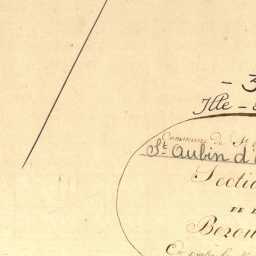 - 3
Ille -
Commune de St
St Aubin d'
Section
DE
Bezou
En